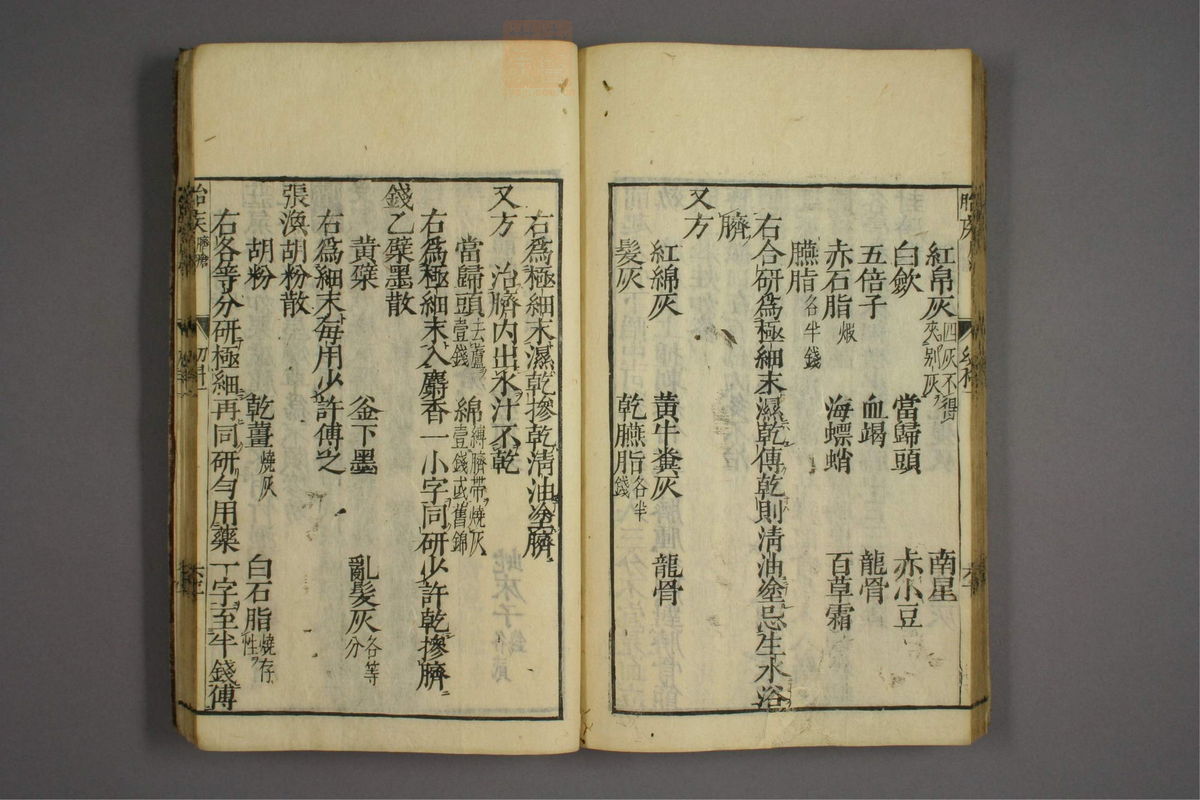 紅帛灰四灰不得夾别灰 南星
白歛 當歸頭 赤小豆
五倍子 血竭 龍骨
赤石脂煆 海螵蛸 百草霜
臙脂各半錢
右合研爲極細末濕乾傅乾則淸油塗忌生水浴
臍
又方
紅綿灰 黃牛糞灰 龍骨
髮灰 乾臙脂各半錢
右爲極細末濕乾摻乾淸油塗臍
又方 治臍內出水汁不乾
當歸頭去蘆壹錢 綿縛臍帶燒灰壹錢或舊錦
右爲極細末入麝香一小字同研少許乾摻臍
錢乙檗墨散
黃檗 釜下墨 亂髮灰各等分
右爲細末每用少許傅之
張渙胡粉散
胡粉 乾薑燒灰 白石脂燒存性
右各等分研極細再同研勻用藥一字至半錢傅